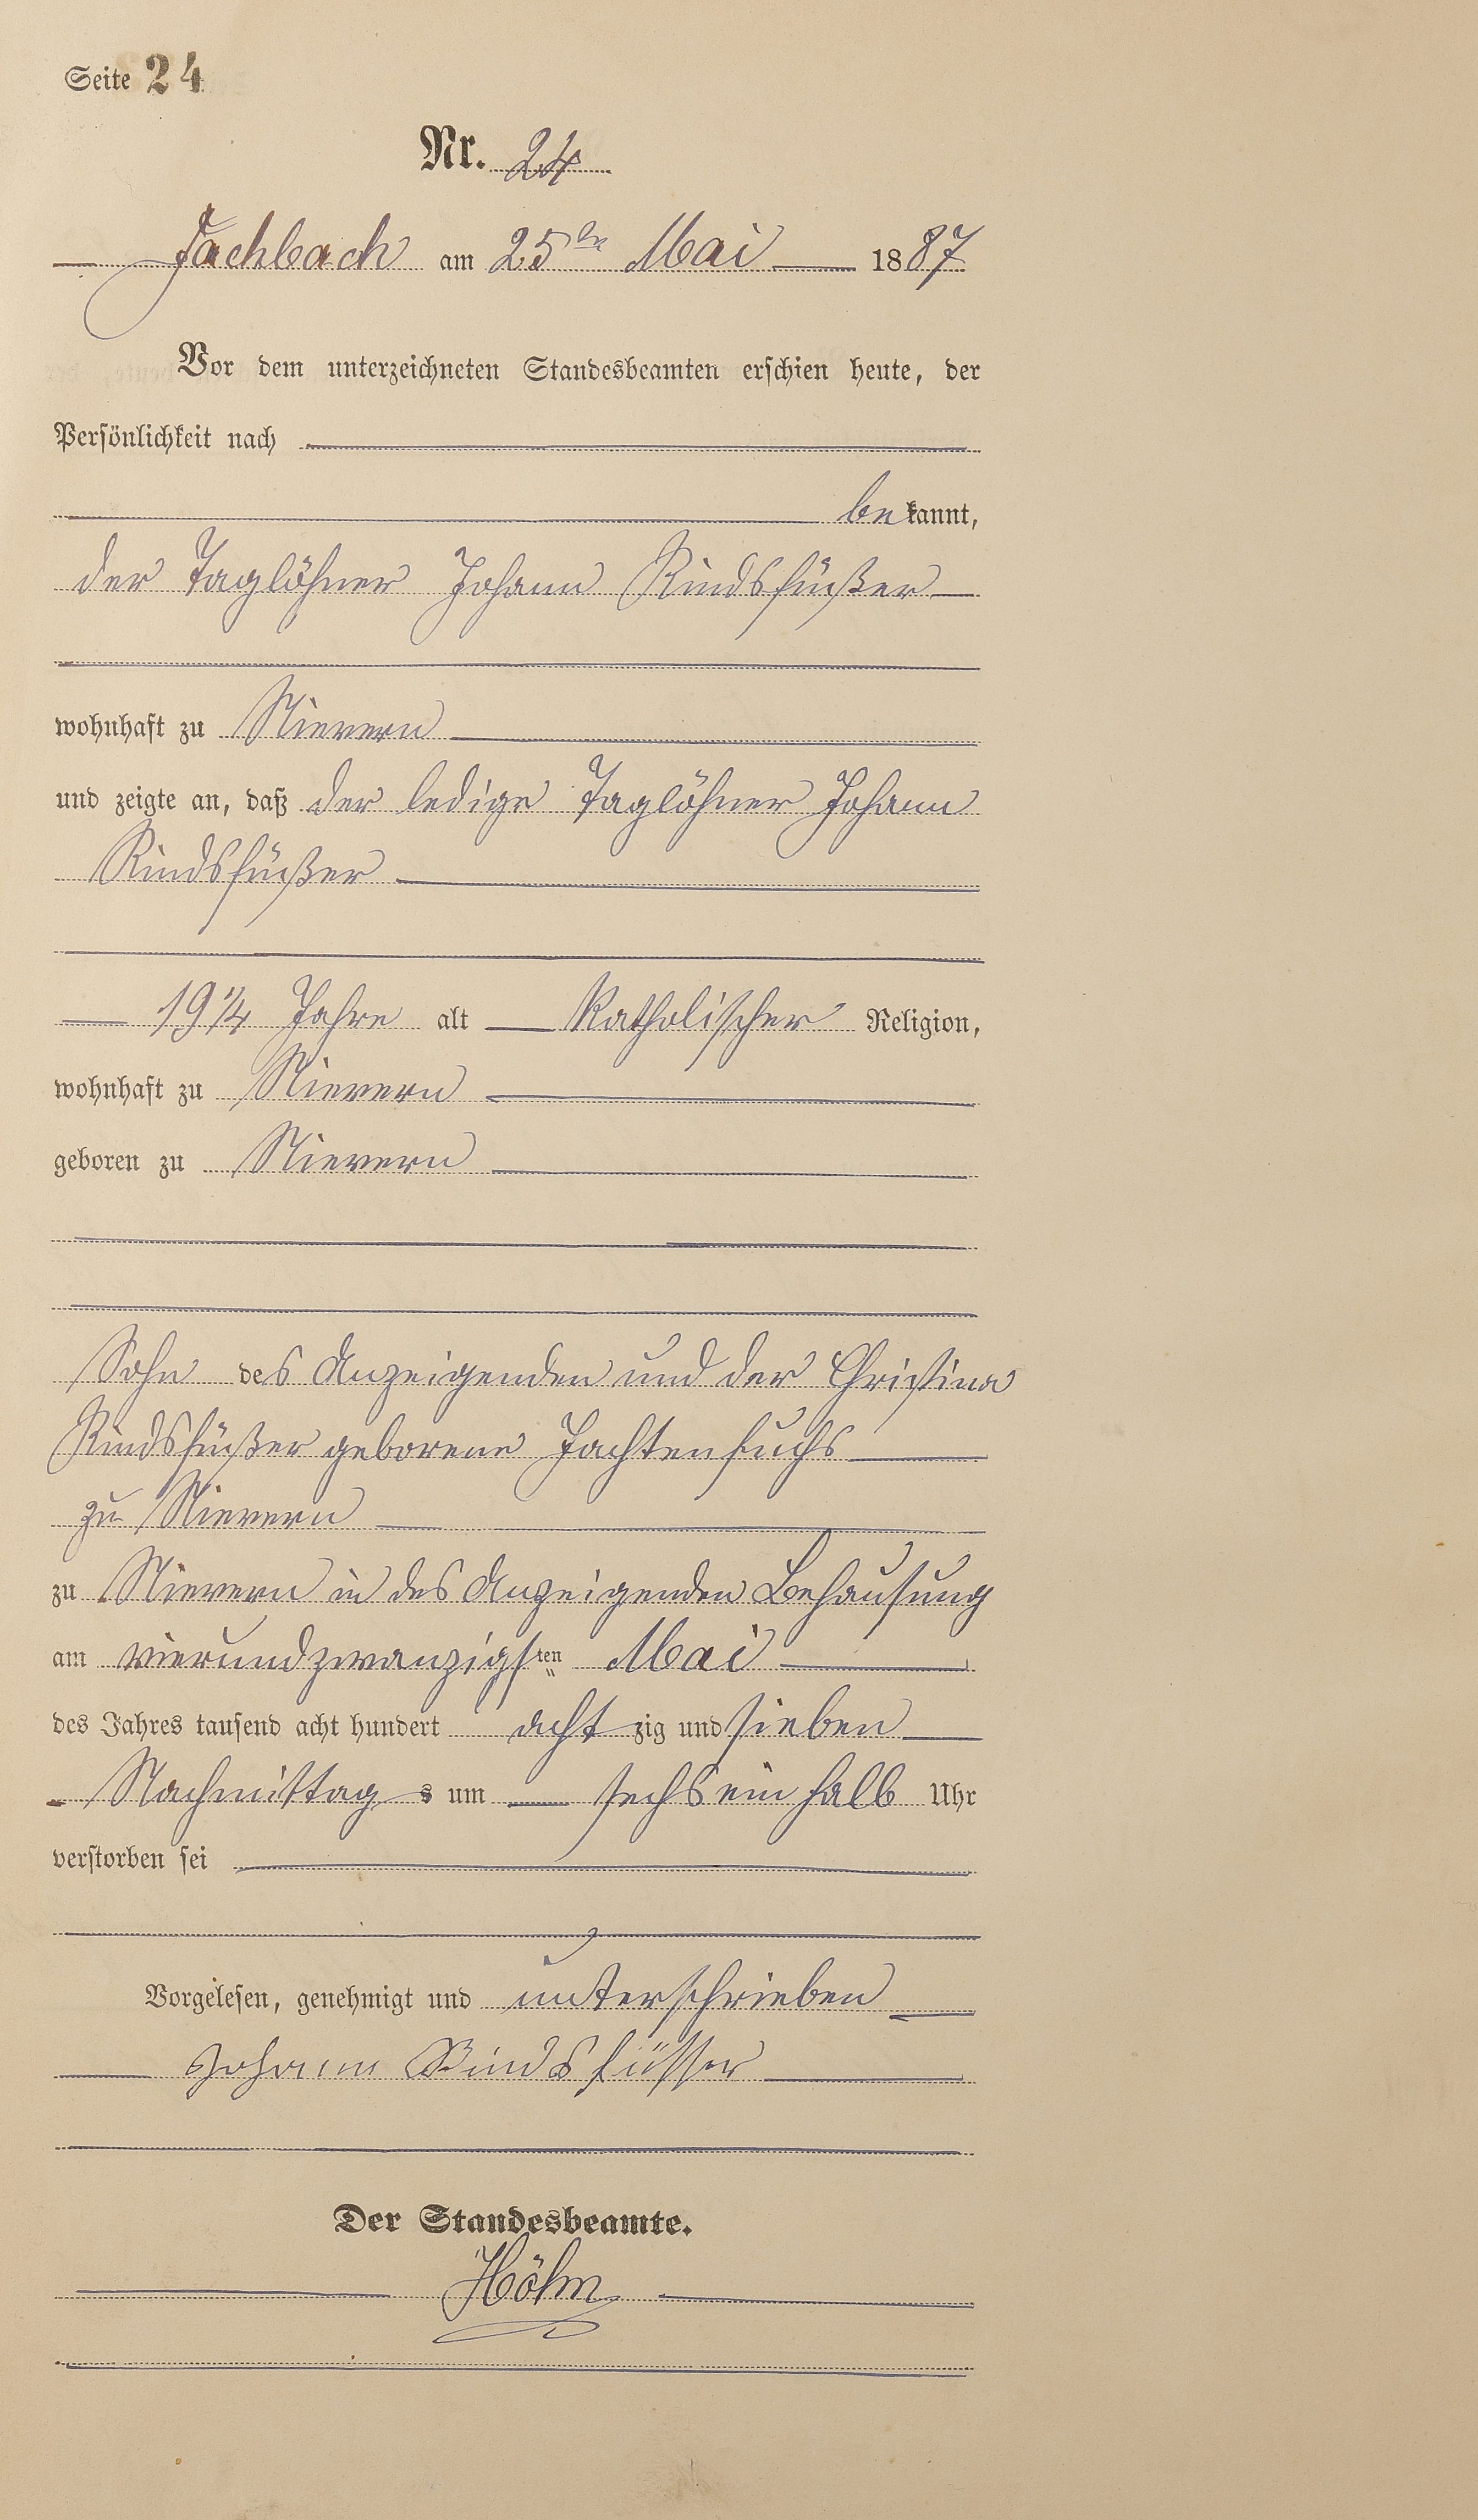 Seite 24
Nr. 24
Fachbach am 25ten Mai 1887
Vor dem unterzeichneten Standesbeamten erschien heute, der
Persönlichkeit nach
bekannt,
der Taglöhner Johann Rindsfüßer
wohnhaft zu Nievern
und zeigte an, daß der ledige Taglöhner Johann
Rindsfüßer
19 1/4 Jahre alt Katholischer Religion,
wohnhaft zu Nievern
geboren zu Nievern
Sohn des Anzeigenden und der Christina
Rindsfüßer geborene Fachtenfuchs
zu Nievern
zu Nievern in des Anzeigenden Behausung
am vierundzwanzigsten Mai
des Jahres tausend acht hundert achtzig und sieben
Nachmittags um sechs ein halb Uhr
verstorben sei
Vorgelesen, genehmigt und unterschrieben
Johann Rindsfüsser
Der Standesbeamte.
Höhn